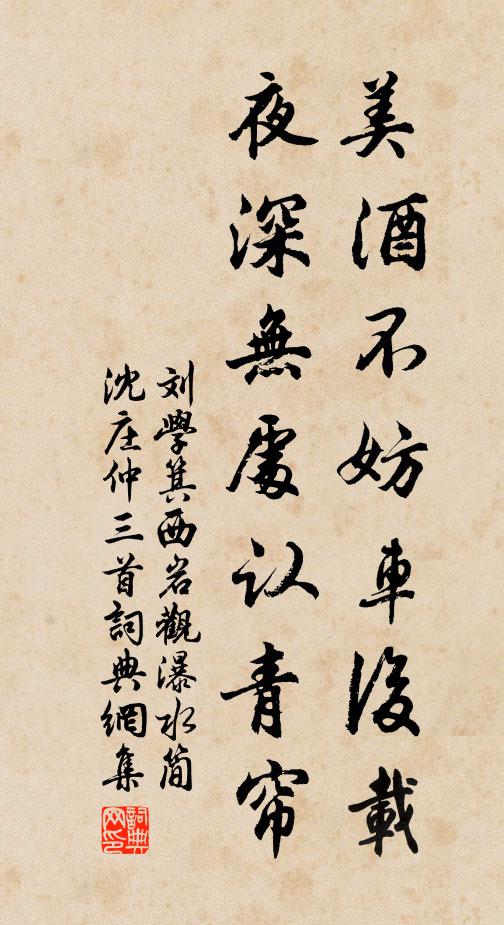 美酒不妨車後載
夜深無處认青帘
刘學箕西岩觀瀑水简
沈庄仲三首詞典網集
詞典网印